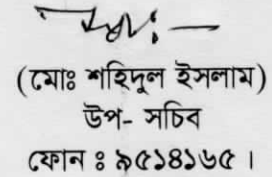 (মোঃ শহিদুল ইসলাম)
উপ- সচিব
ফোন ঃ ৯৫১৪১৬৫ ।